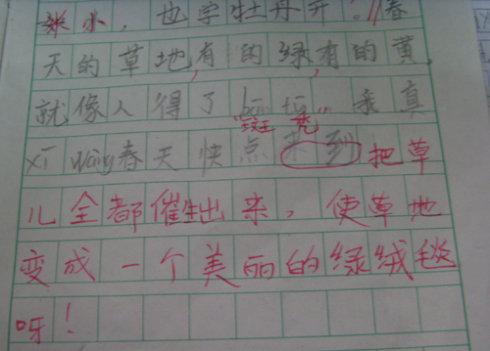 米小，也学牡丹开。"春
天的草地，有的绿，有的黄，
就像人得了bān tū，我真
斑 秃
xī wàng春天快点来到把草
儿全都催生出来，使草地
变成一个美丽的绿绒毯
呀！